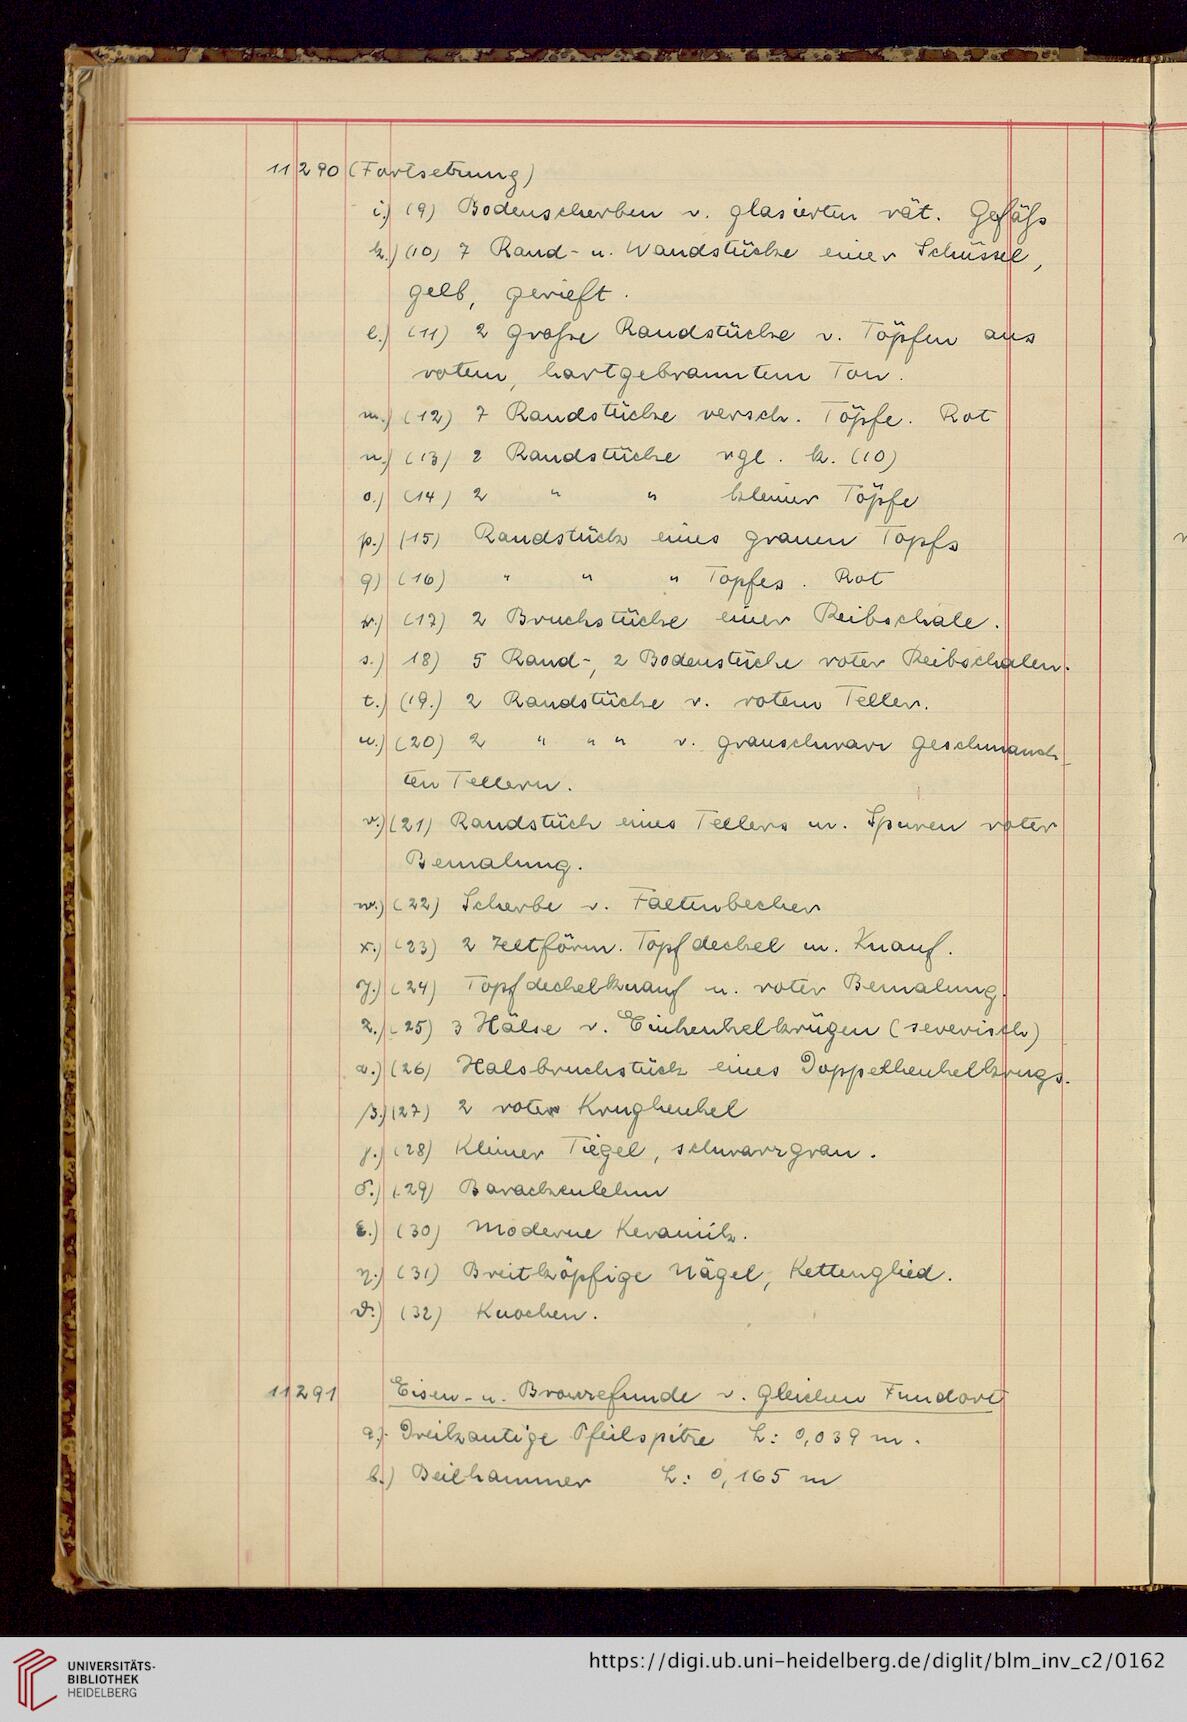 11290 (Fortsetzung)
i.) (9) Bodenscherben v. glasierten rät. Gefäß
k.) (10) 7 Rand- u. Wandstücke einer Schüssel,
gelb, gerieft.
l.) (11) 2 große Randstücke v. Töpfen aus
rotem, hartgebranntem Ton.
m.) (12) 7 Randstücke versch. Töpfe. Rot
n.) (13) 2 Randstücke vgl. k. (10)
o.) (14) 2 " " kleiner Töpfe
p.) (15) Randstück eines grauen Topfs
q) (16) " " " Topfes. Rot
r.) (17) 2 Bruchstücke einer Reibschale.
s.) 18) 5 Rand-, 2 Bodenstücke roter Reibschalen.
t.) (19.) 2 Randstücke v. rotem Teller.
u.) (20) 2 " " " v. grauschwarz geschmauch-
ten Tellern.
v.) (21) Randstück eines Tellers m. Spuren roter
Bemalung.
w.) (22) Scherbe v. Faltenbecher
x.) (23) 2 zeltförm. Topfdeckel m. Knauf.
y.) (24) Topfdeckelknauf m. roter Bemalung.
z.) (25) 3 Hälse v. Einhenkelkrügen (severisch)
α.) (26) Halsbruchstück eines Doppelhenkelkrugs.
β.) (27) 2 rote Krughenkel
γ.) (28) Kleiner Tiegel, schwarzgrau.
δ.) (29) Barackenlehm
ε.) (30) Moderne Keramik.
η.) (31) Breitköpfige Nägel, Kettenglied.
ϑ.) (32) Knochen.
11291 Eisen- u. Bronzefunde v. gleichen Fundort
a.) Dreikantige Pfeilspitze L: 0,039 m.
b.) Beilhammer L: 0,165 m
UNIVERSITÄTS-
BIBLIOTHEK
HEIDELBERG
https://digi.ub.uni-heidelberg.de/diglit/blm_inv_c2/0162